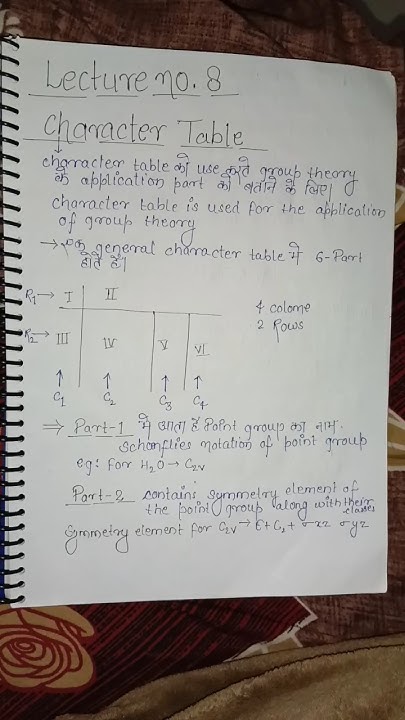 Lecture no. 8
Character Table
character table को use करते group theory
के application part को बताने के लिए।
character table is used for the application
of group theory
→ एक general character table में 6-Part
होते हैं।
R1→ I II
4 colome
2 Rows
R2→ III IV V VI
↑ ↑ ↑ ↑
C1 C2 C3 C4
⇒ Part-1 में आता है Point group का नाम.
Schonflies notation of point group
eg: for H2O → C2v
Part-2 contains symmetry element of
the point group along with their
classes
Symmetry element for C2v → E + C2 + σxz σyz